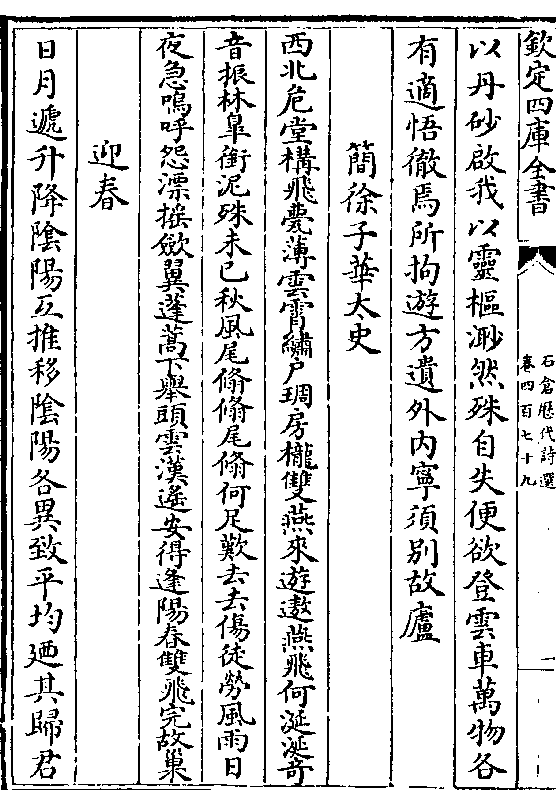 欽定四庫全書
石倉歷代詩選
卷四百七十九
以丹砂啟我以靈樞渺然殊自失便欲登雲車萬物各
有適悟徹焉所拘遊方遺外内寧須别故廬
簡徐子華太史
西北危堂構飛甍薄雲霄繡户琱房櫳雙燕來遊遨燕飛何涎涎奇
音振林臯銜泥殊未已秋風尾翛翛尾翛何足歎去去傷徒勞風雨日
夜急嗚呼怨漂搖斂翼蓬蒿下舉頭雲漢遙安得逢陽春雙飛完故巢
迎春
日月遞升降陰陽互推移陰陽各異致平均廼其歸君